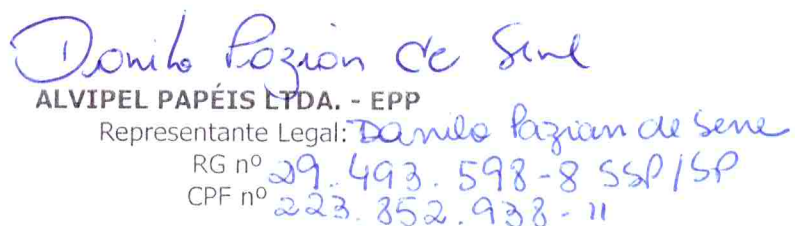 Danilo Pazian de Sene
ALVIPEL PAPÉIS LTDA. - EPP
Representante Legal: Danilo Pazian de Sene
RG nº 29.493.598-8 SSP/SP
CPF nº 223.852.938-11